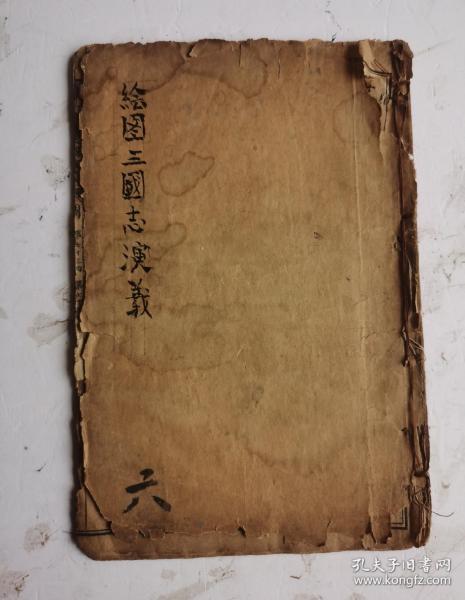 绘图三國志演義
六
孔夫子旧书网
www.kongfz.com